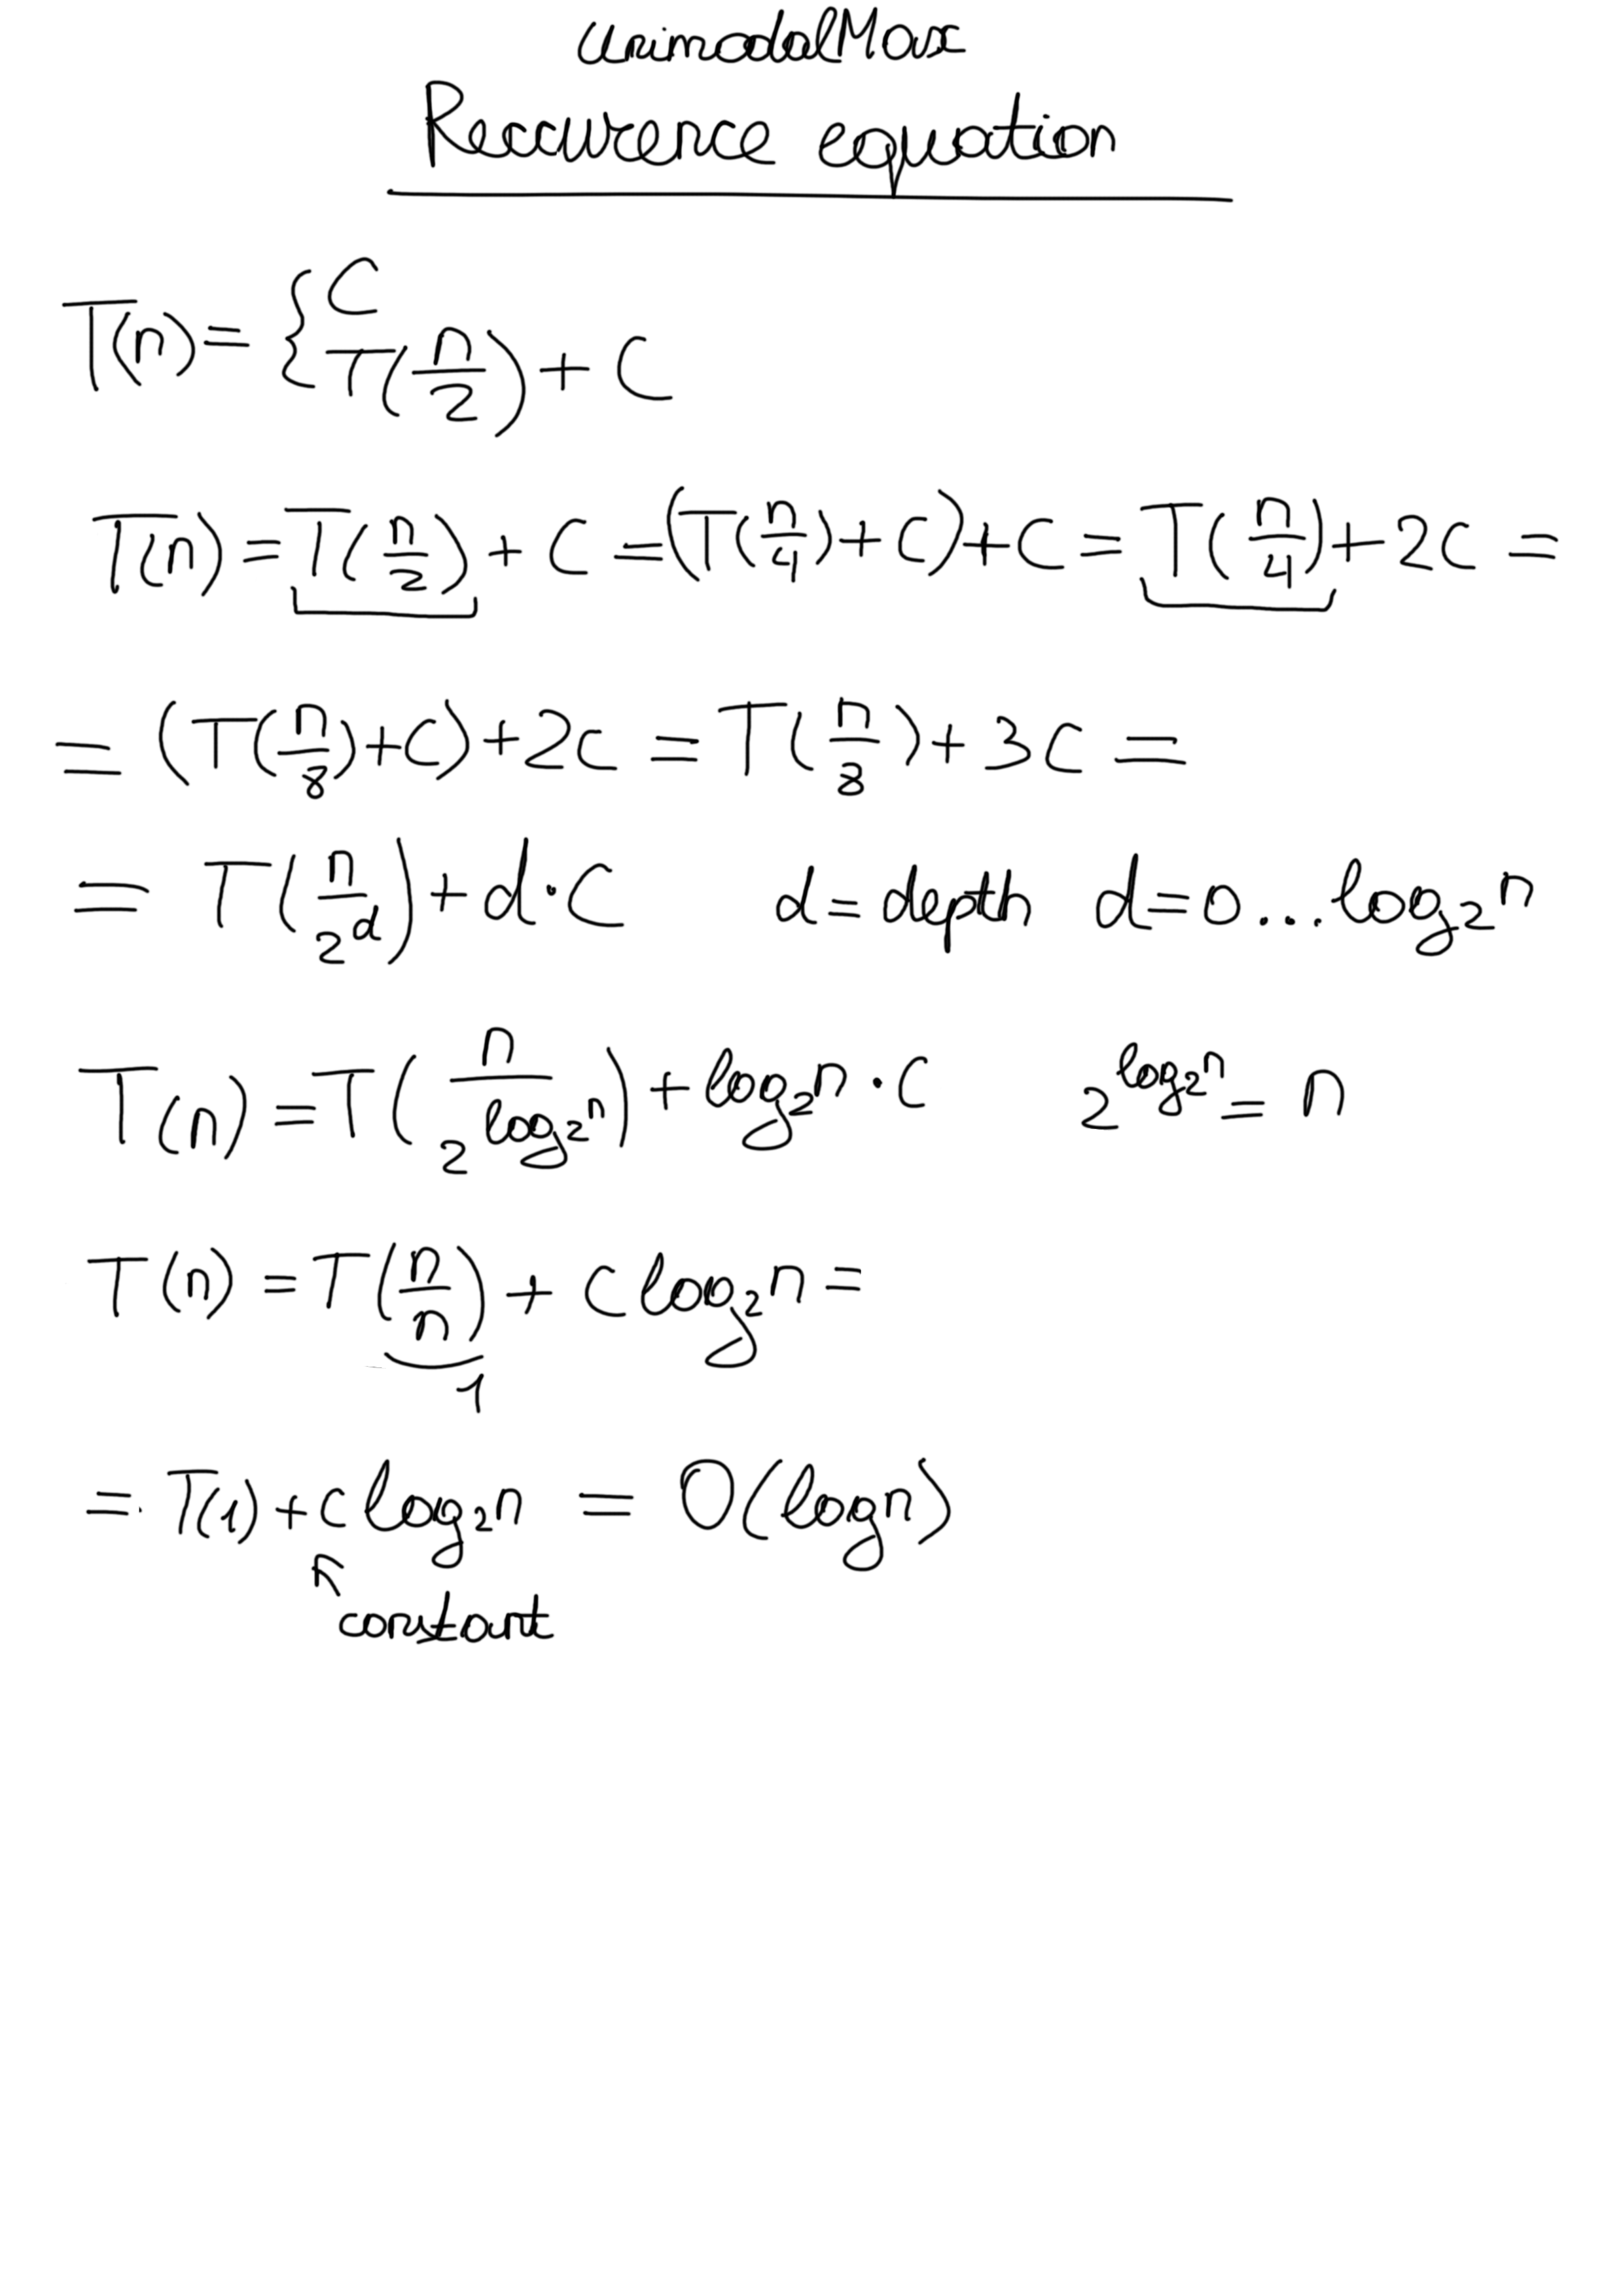 unimodalMax
Reccurence equation
T(n) = { C
T(n/2) + C
T(n) = T(n/2) + C = (T(n/4) + C) + C = T(n/4) + 2C =
= (T(n/8) + C) + 2C = T(n/8) + 3C =
= T(n/2^d) + d · C d = depth d = 0 ... log₂ n
T(n) = T(n/2^(log₂ n)) + log₂ n · C 2^(log₂ n) = n
T(n) = T(n/n) + C log₂ n =
1
= T(1) + C log₂ n = O(log n)
constant